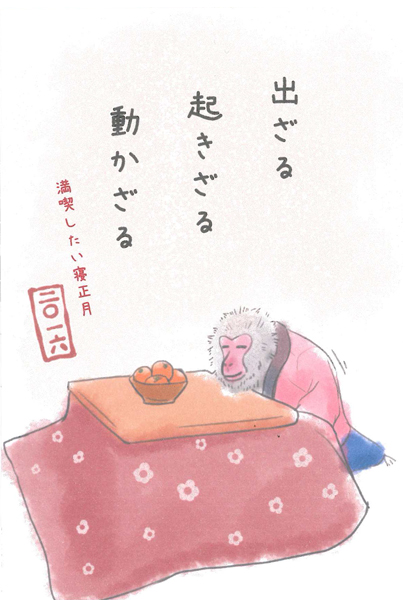 出ざる
起きざる
動かざる
満喫したい寝正月
二〇一六